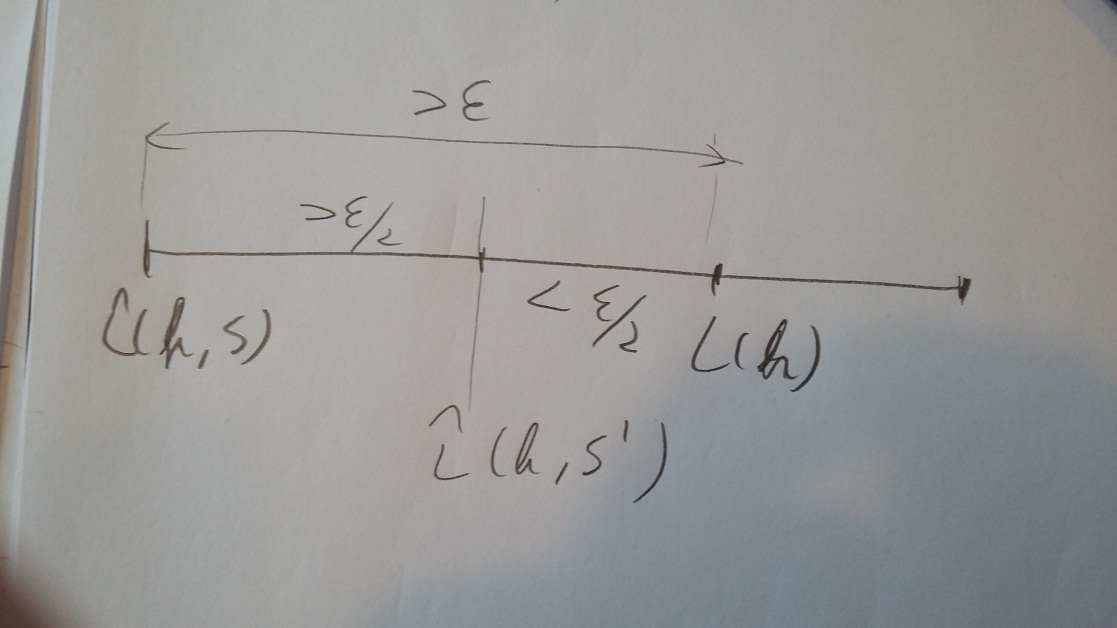 > ε
> ε/2
< ε/2
L̂(h,S)
L(h)
L̂(h,S')